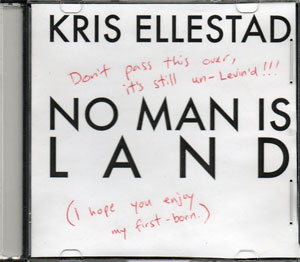 KRIS ELLESTAD.
Don't pass this over,
it's still un-Levin'd!!!
NO MAN IS
LAND
(I hope you enjoy
my first-born.)